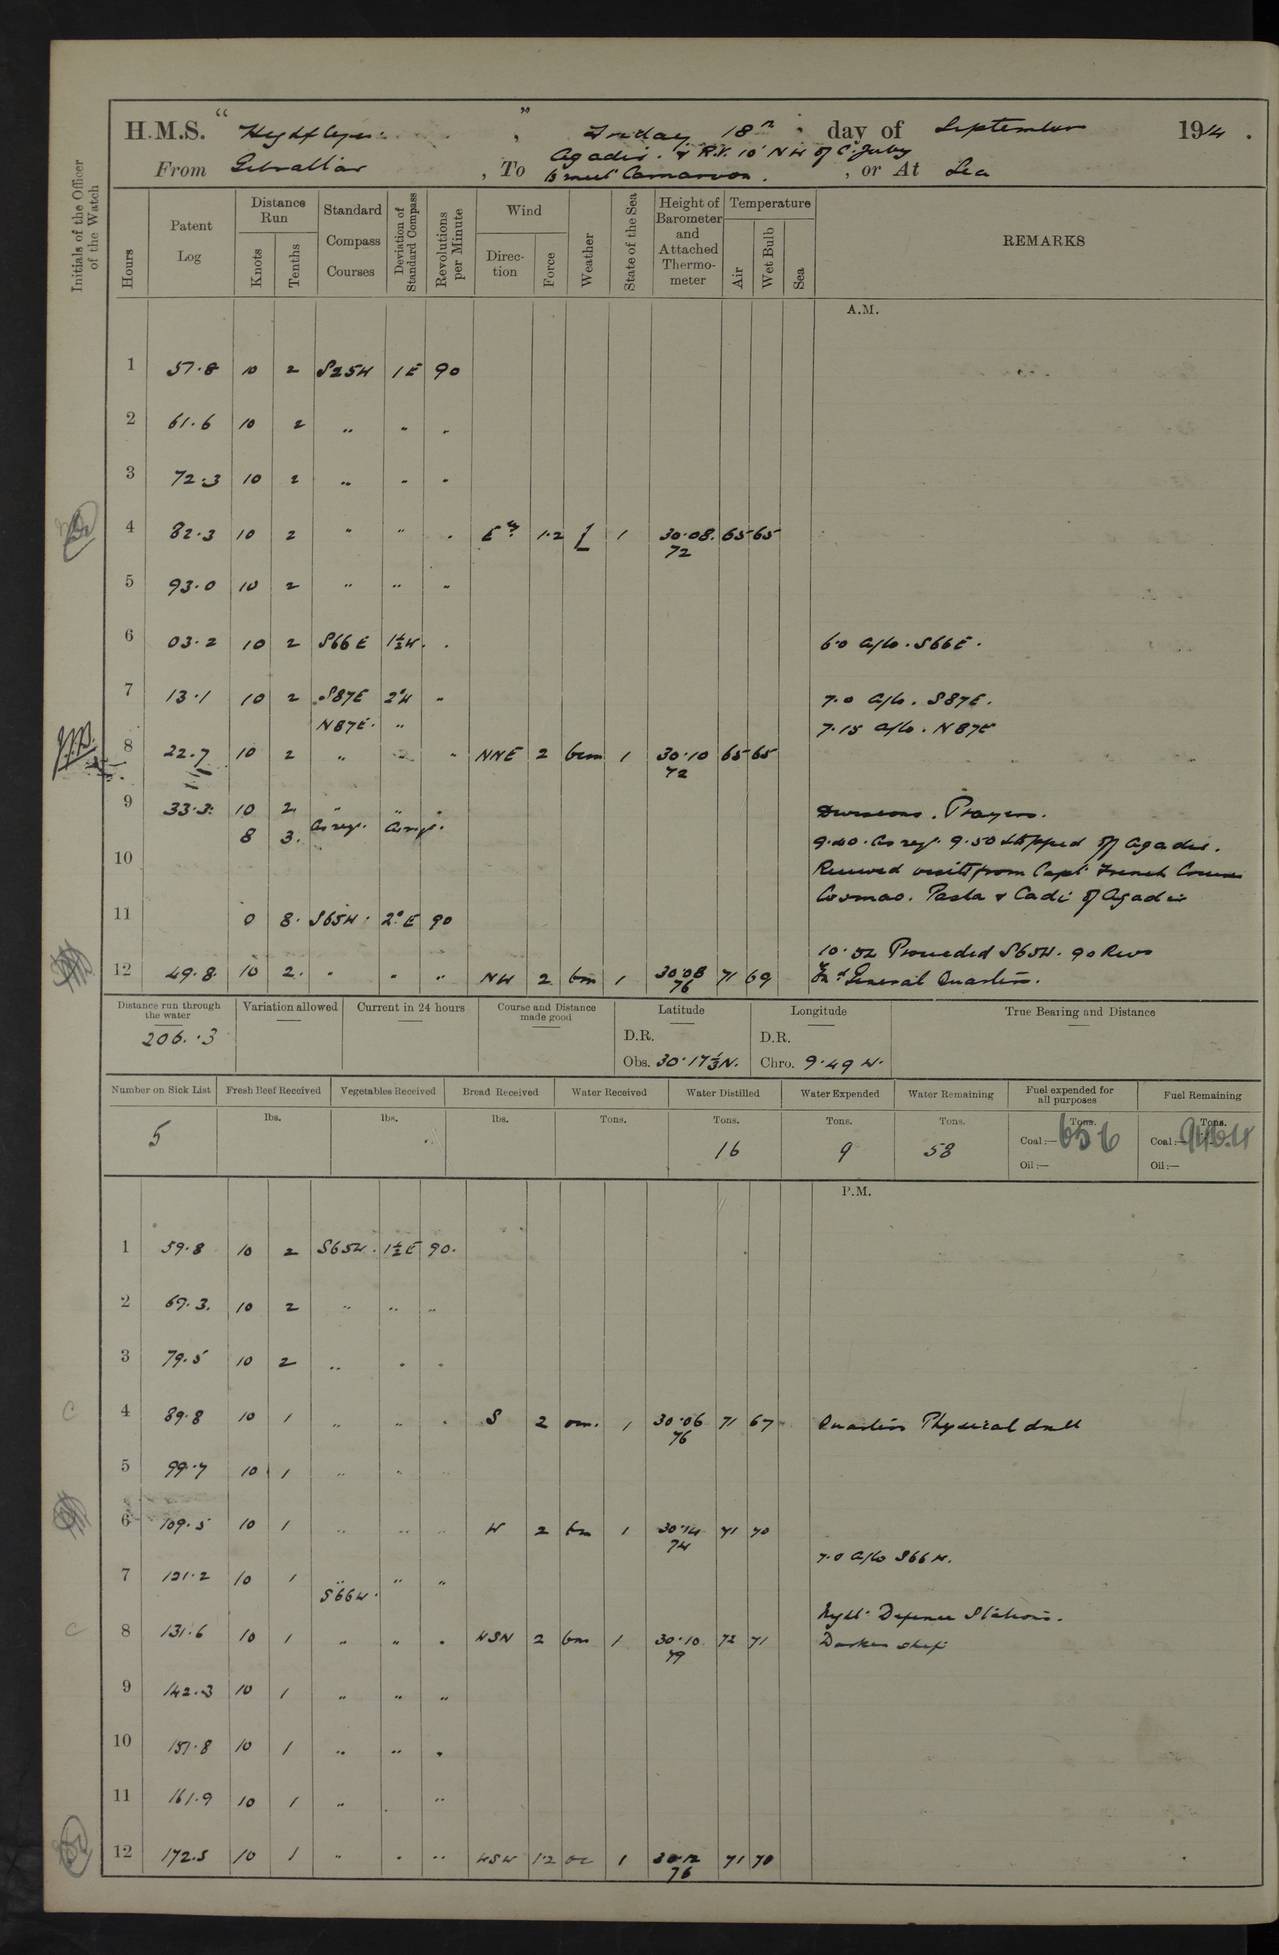 H.M.S. "Highflyer" , Friday 18th day of September 1914.
Agadir. & R.V. 10' NW of C. Juby
From Gibraltar , To to meet Carnarvon. , or At Sea
Initials of the Officer of the Watch
Hours Patent Log Distance Run Knots Tenths Standard Compass Courses Deviation of Standard Compass Revolutions per Minute Wind Direction Force Weather State of the Sea Height of Barometer and Attached Thermometer Temperature Air Wet Bulb Sea REMARKS
A.M.
1 51.8 10 2 S25W 1E 90
2 61.6 10 2 " " "
3 72.3 10 2 " " "
4 82.3 10 2 " " " E'ly 1.2 1 30.08. 65 65
72
5 93.0 10 2 " " "
6 03.2 10 2 S66E 1½W. " 6.0 a/co. S66E.
7 13.1 10 2 S87E 2°W " 7.0 a/co. S87E.
N87E. " 7.15 a/co. N87E
8 22.7 10 2 " " " NNE 2 bcm 1 30.10 65 65
72
9 33.3. 10 2 " " " Divisions. Prayers.
8 3. As req. As req. 9.40. As req. 9.50 Stopped off Agadir.
10 Received visits from Capt French
Cosmao. Pasha & Cadi of Agadir
11 0 8. S65W. 2°E 90
10.52 Proceeded S65W. 90 Revs
12 49.8 10 2. " " " NW 2 bm 1 30.08 71 69 General Quarters.
76
Distance run through the water Variation allowed Current in 24 hours Course and Distance made good Latitude Longitude True Bearing and Distance
206.3 D.R. D.R.
Obs. 30.17⅓N. Chro. 9.49 W.
Number on Sick List Fresh Beef Received Vegetables Received Bread Received Water Received Water Distilled Water Expended Water Remaining Fuel expended for all purposes Fuel Remaining
lbs. lbs. lbs. Tons. Tons. Tons. Tons. Tons. Tons.
5 16 9 58 Coal:— Coal:—
Oil:— Oil:—
P.M.
1 59.8 10 2 S65W. 1½E 90.
2 69.3. 10 2 " " "
3 79.5 10 2 " " "
4 89.8 10 1 " " " S 2 om. 1 30.06 71 67 Quarters Physical drill
76
5 99.7 10 1 " " "
6 109.5 10 1 " " " W 2 bm 1 30.14 71 70
74
7.0 a/co S66W.
7 121.2 10 1 " " "
S66W.
Night Defence Stations.
8 131.6 10 1 " " " WSW 2 bm 1 30.10 72 71 Darken ship
79
9 142.3 10 1 " " "
10 151.8 10 1 " " "
11 161.9 10 1 " "
12 172.5 10 1 " " " WSW 1.2 oc 1 30.12 71 70
76